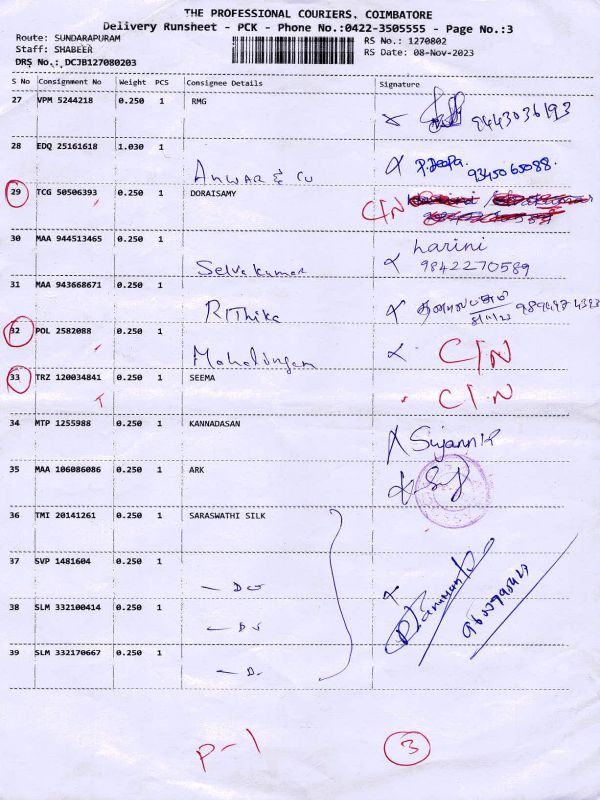 THE PROFESSIONAL COURIERS. COIMBATORE
Delivery Runsheet - PCK - Phone No.:0422-3505555 - Page No.:3
Route: SUNDARAPURAM
RS No.: 1270802
Staff: SHABEER
RS Date: 08-Nov-2023
DRS No.: DCJB127080203
S No Consignment No Weight PCS Consignee Details Signature
27 VPM 5244218 0.250 1 RMG 9443036193
28 EDQ 25161618 1.030 1 ANWAR & Co P.Deepa. 9345065088.
29 TCG 50506393 0.250 1 DORAISAMY C/N
30 MAA 944513465 0.250 1 Selvakumar harini
9842270589
31 MAA 943668671 0.250 1 RIThika
32 POL 2582088 0.250 1 Mahalingam C/N
33 TRZ 120034841 0.250 1 SEEMA C/N
34 MTP 1255988 0.250 1 KANNADASAN
35 MAA 106086086 0.250 1 ARK
36 TMI 20141261 0.250 1 SARASWATHI SILK
37 SVP 1481604 0.250 1
38 SLM 332100414 0.250 1
39 SLM 332170667 0.250 1
P-1 3